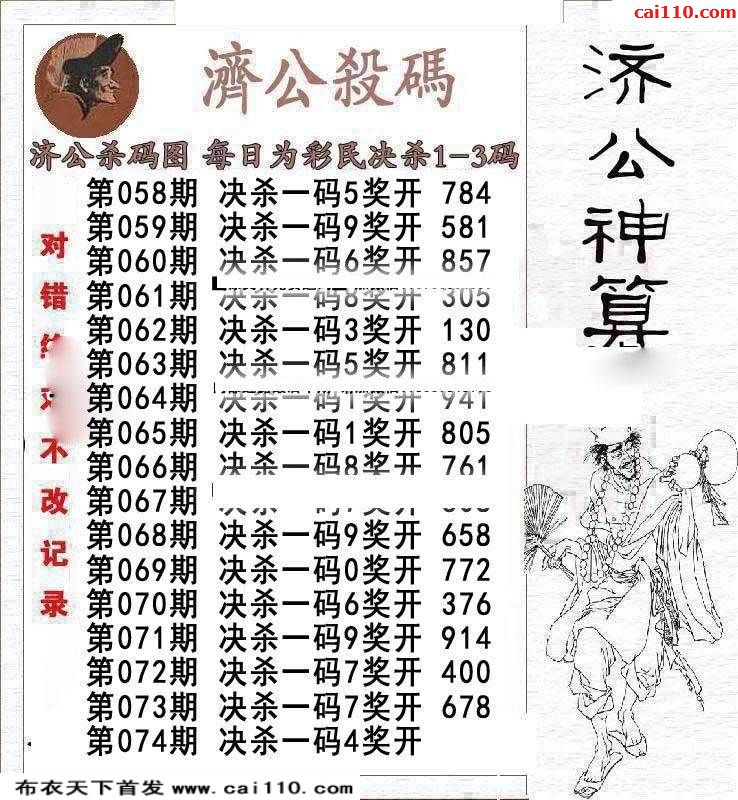 cai110.com
濟公殺碼
济公杀码图 每日为彩民决杀1-3码
第058期 决杀一码5奖开 784
第059期 决杀一码9奖开 581
第060期 决杀一码6奖开 857
第061期 决杀一码8奖开 305
第062期 决杀一码3奖开 130
第063期 决杀一码5奖开 811
第064期 决杀一码1奖开 941
第065期 决杀一码1奖开 805
第066期 决杀一码8奖开 761
第067期
第068期 决杀一码9奖开 658
第069期 决杀一码0奖开 772
第070期 决杀一码6奖开 376
第071期 决杀一码9奖开 914
第072期 决杀一码7奖开 400
第073期 决杀一码7奖开 678
第074期 决杀一码4奖开
对错
不改记录
济公神算
布衣天下首发 www.cai110.com